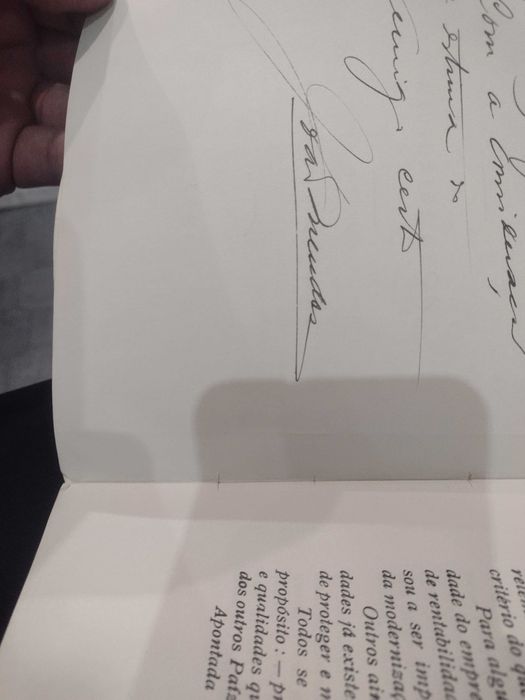 Com a Consideraçã
estima do
amigo certo
critério do q
Para algu
dade do emp
de rentabilida
sou a ser imp
da moderniza
Outros a
dades já existe
de proteger e m
Todos se
propósito : — pr
e qualidades qu
dos outros Paí
Apontada